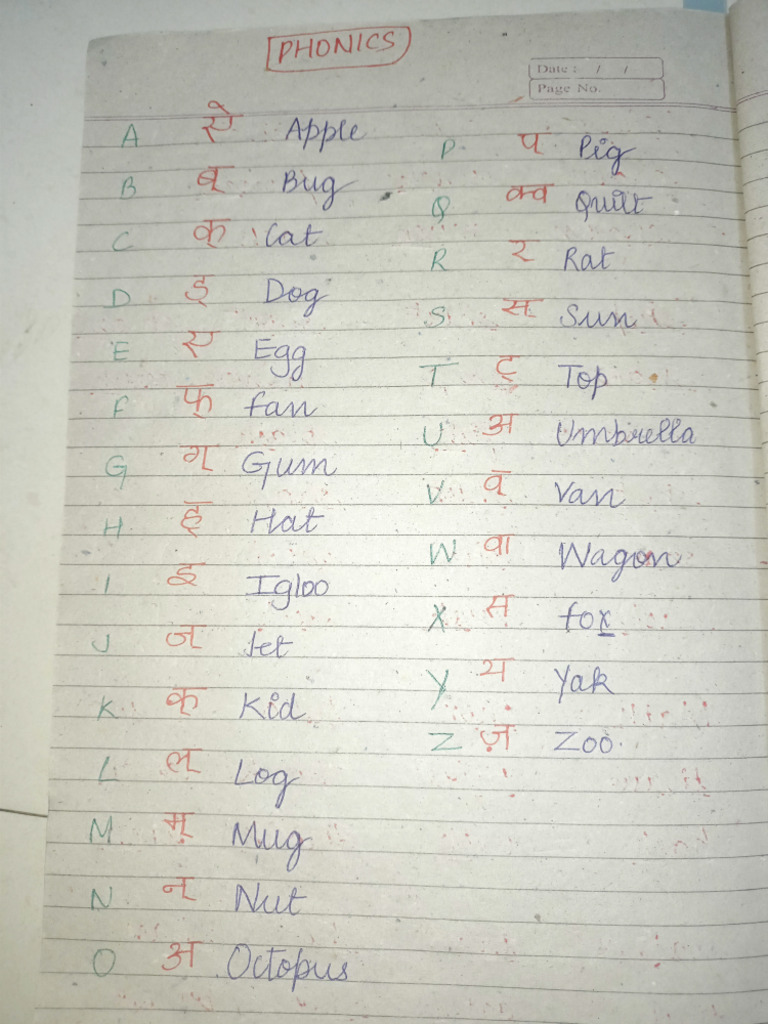 PHONICS
Date : / /
Page No.
A ऐ Apple
B ब् Bug
C क् Cat
D ड् Dog
E ए Egg
F फ् fan
G ग् Gum
H ह् Hat
I इ Igloo
J ज् Jet
K क् Kid
L ल् Log
M म् Mug
N न् Nut
O अ Octopus
P प् Pig
Q क्व Quilt
R र Rat
S स् Sun
T ट् Top
U अ Umbrella
V व् Van
W वा Wagon
X स fox
Y य Yak
Z ज़ Zoo.